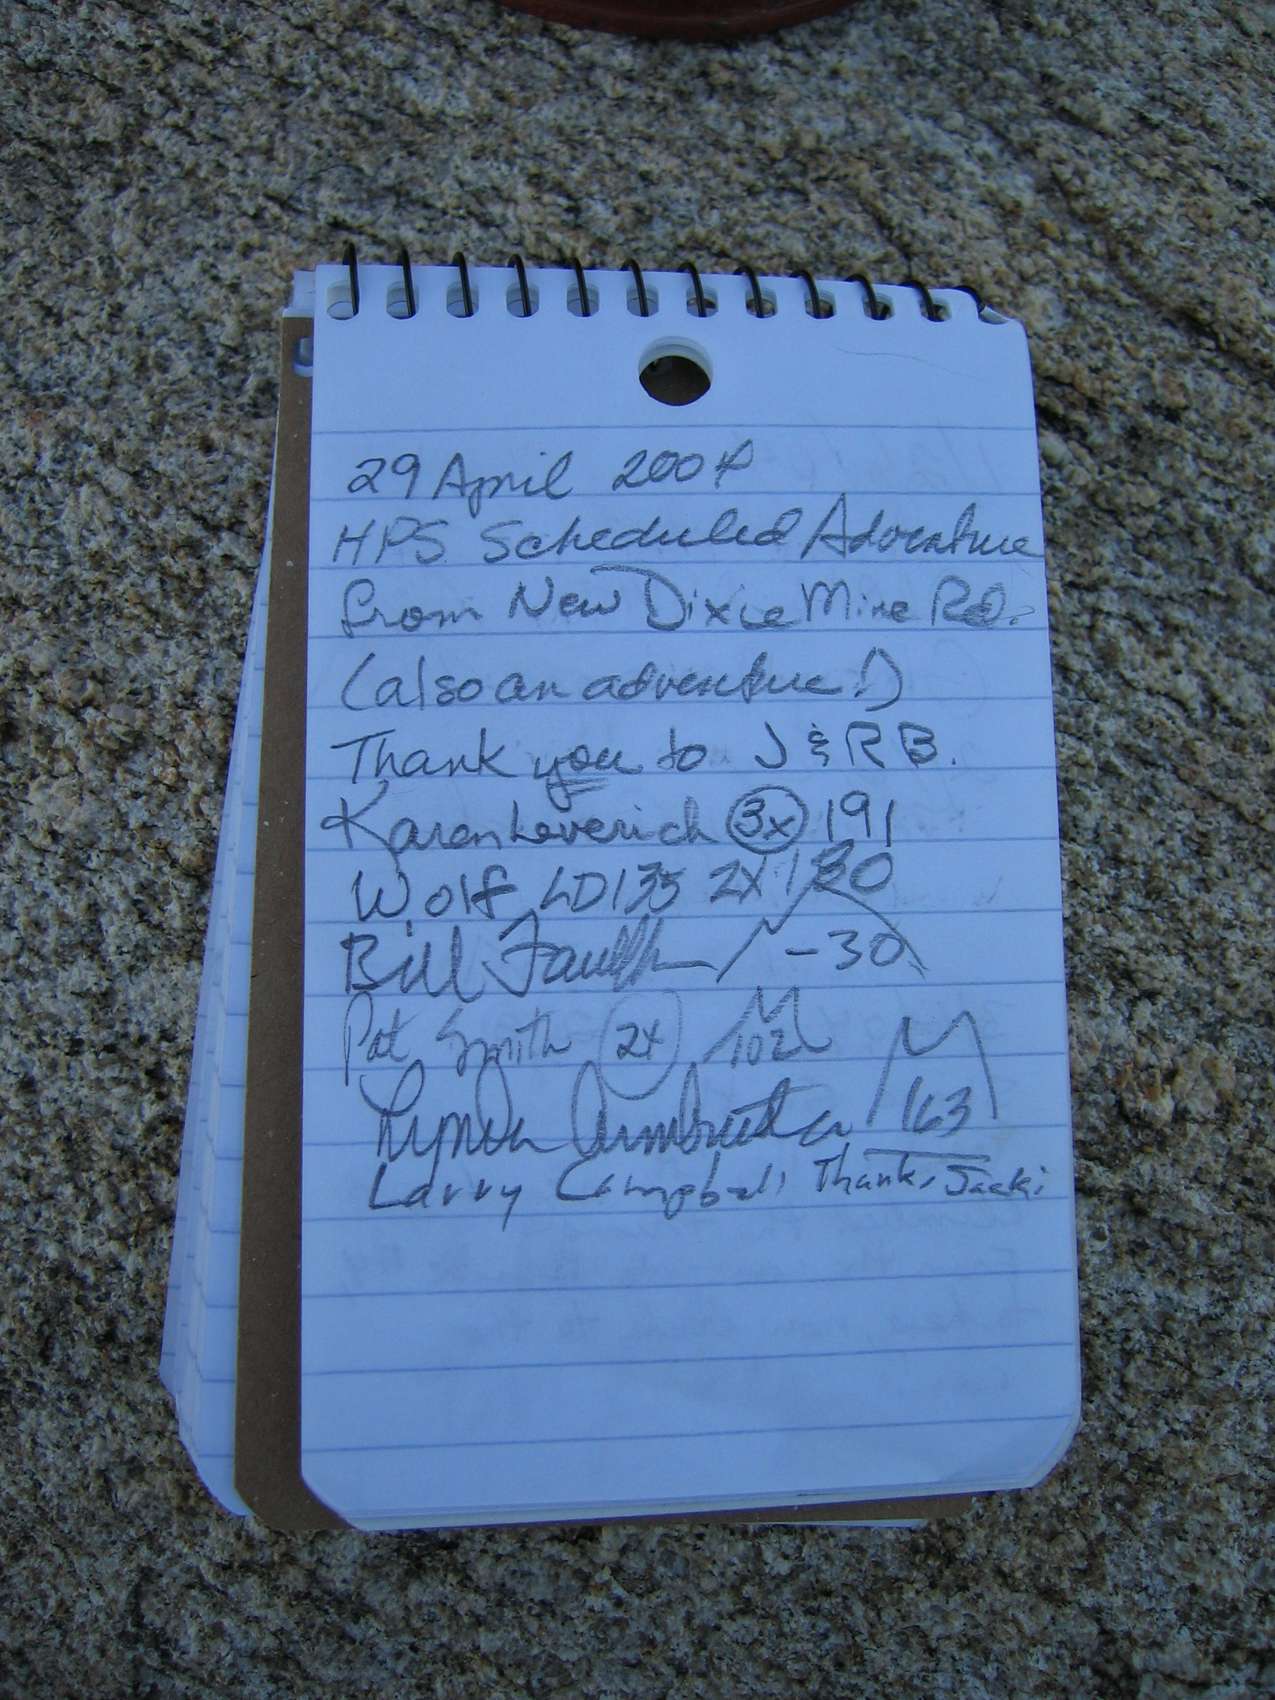 29 April 2004
HPS Scheduled Adventure
from New Dixie Mine Rd.
(also an adventure!)
Thank you to J & R B.
Karen Leverich 3x 191
Wolf LD135 2X 130
Bill -30
Pat Smith 2x 102
Lynda Armbruster 163
Larry Campbell Thanks Jacki